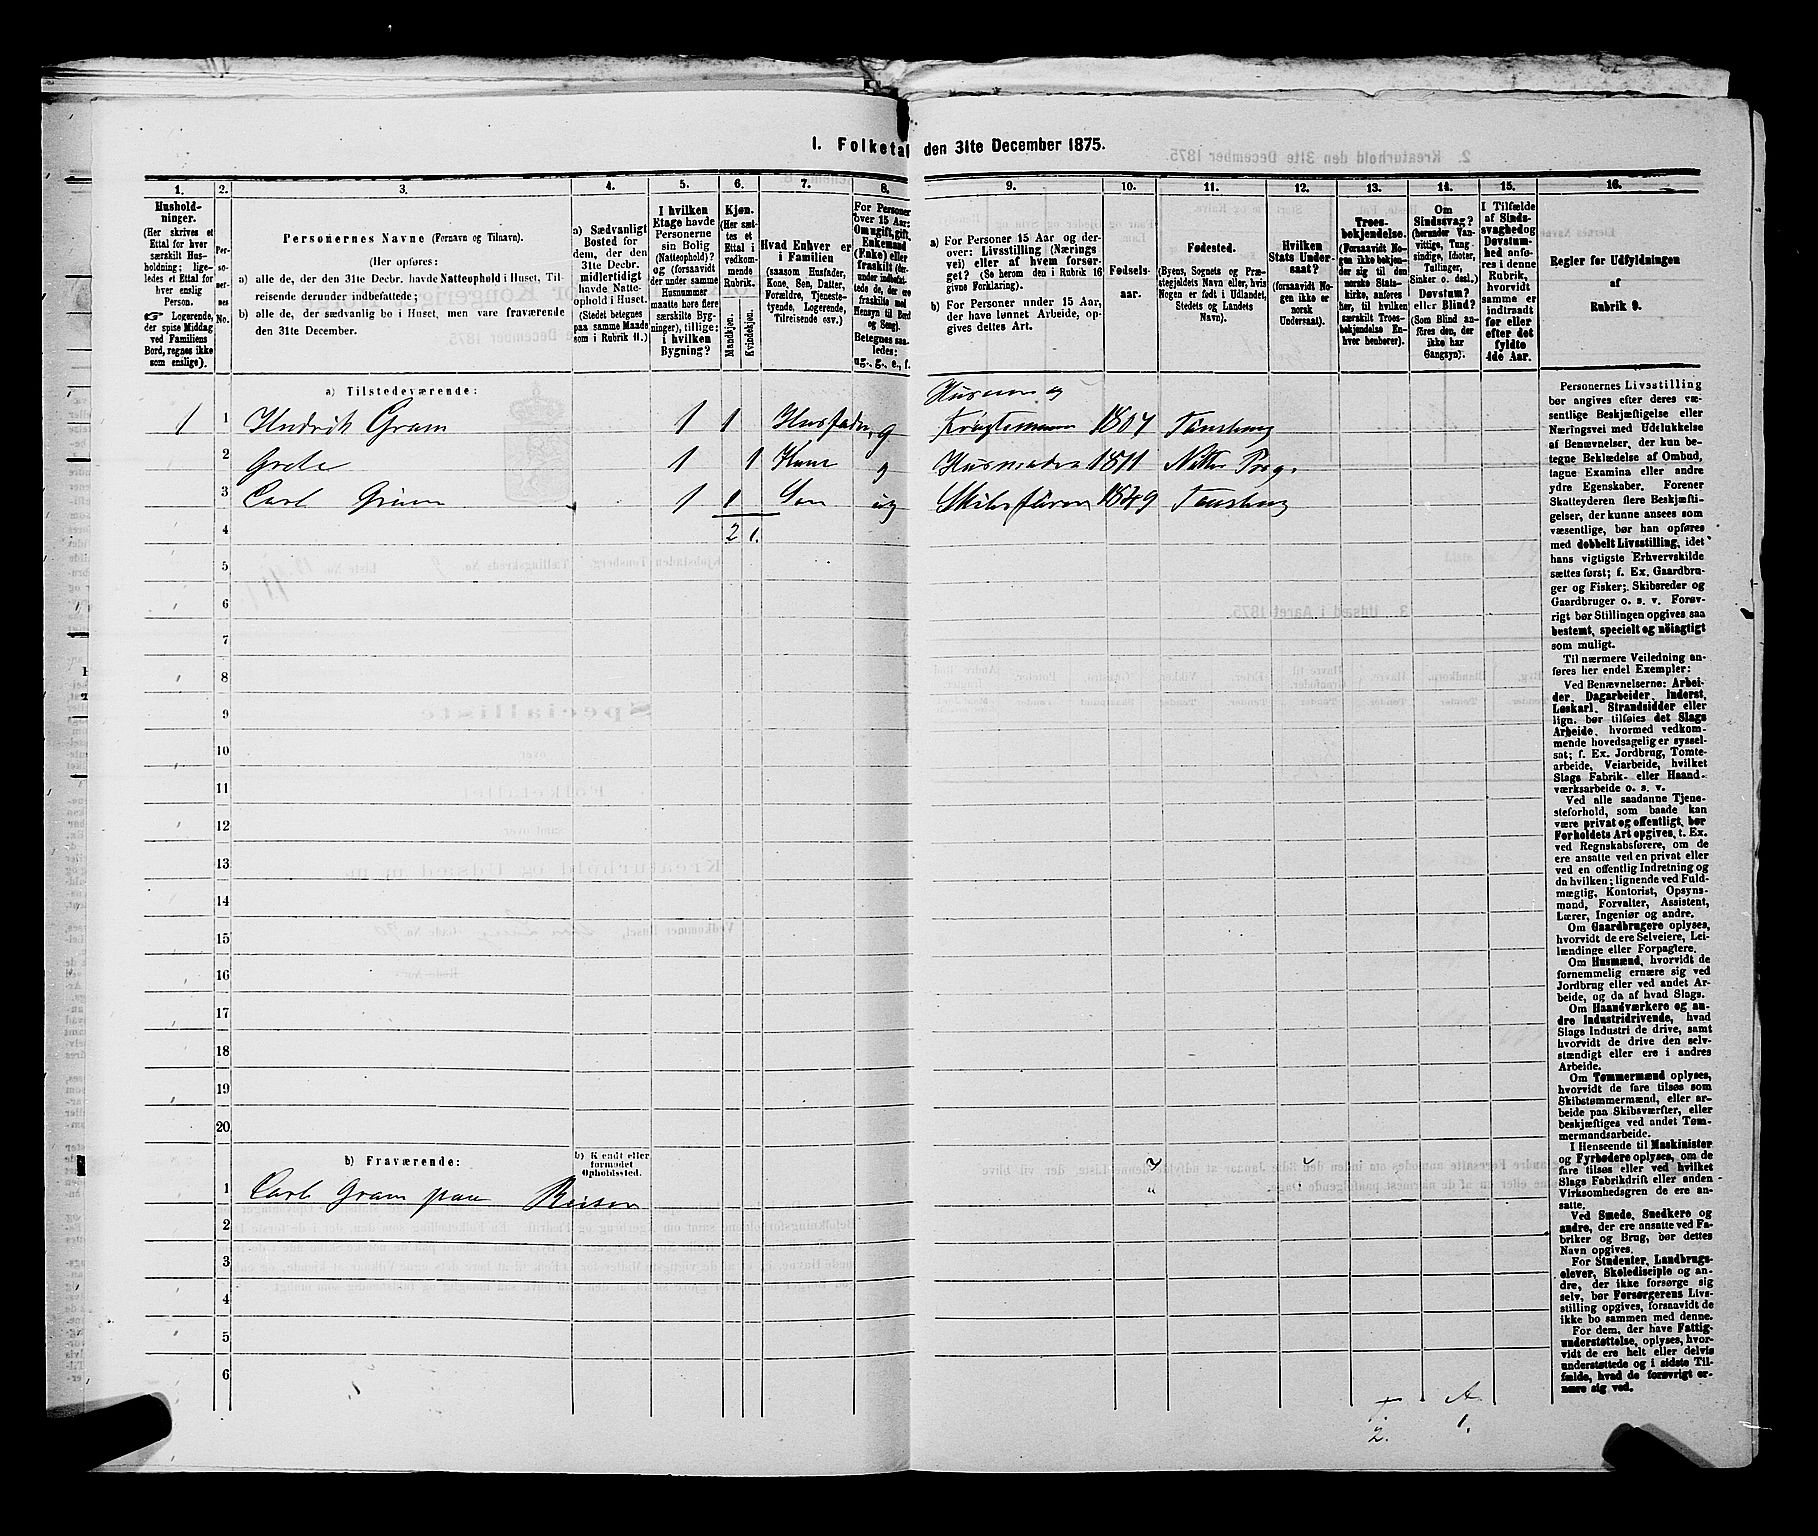 1. Folketal den 31te December 1875.
1. 2. 3. 4. 5. 6. 7. 8. 9. 10. 11. 12. 13. 14. 15. 16.
Hushold-
ninger.
(Her skrives et
Ettal for hver
særskilt Hus-
holdning; lige-
ledes et Ettal for
hver enslig
Person.
☞ Logerende,
der spise Middag
ved Familiens
Bord, regnes ikke
som enslige).
Per-
so-
ner-
nes
No.
Personernes Navne (Fornavn og Tilnavn).
(Her opføres:
a) alle de, der den 31te Decbr. havde Natteophold i Huset, Til-
reisende derunder indbefattede;
b) alle de, der sædvanlig bo i Huset, men vare fraværende
den 31te December.
a) Sædvanligt
Bosted for
dem, der den
31te Decbr.
midlertidigt
havde Natte-
ophold i Huset.
(Stedet betegnes
paa samme Maade
som i Rubrik 11.)
I hvilken
Etage havde
Personerne
sin Bolig
(Natteophold)?
og (forsaavidt
der under samme
Husnummer
maatte høre flere
særskilte Byg-
ninger), tillige:
i hvilken
Bygning?
Kjøn.
(Her sæt-
tes et
Ettal i
vedkom-
mende
Rubrik.
Mandkjøn.
Kvindekjøn.
Hvad Enhver er
i Familien
(saasom Husfader,
Kone, Søn, Datter,
Forældre, Tjeneste-
tyende, Logerende,
Tilreisende osv.)
For Personer
over 15 Aar:
Om ugift, gift,
Enkemand
(Enke) eller
fraskilt (der-
under indbefat-
tede de, der ere
fraskilte med
Hensyn til Bord
og Seng).
Betegnes saa-
ledes:
ug., g., e., f.
a) For Personer 15 Aar og der-
over: Livsstilling (Nærings-
vei) eller af hvem forsør-
get? (Se herom den i Rubrik 16
givne Forklaring).
b) For Personer under 15 Aar,
der have lønnet Arbeide, op-
gives dettes Art.
Fødsels-
aar.
Fødested.
(Byens, Sognets og Præ-
stegjeldets Navn eller, hvis
Nogen er født i Udlandet,
Stedets og Landets
Navn).
Hvilken
Stats Under-
saat?
(forsaavidt No-
gen ikke er
norsk
Undersaat).
Troes-
bekjendelse.
(Forsaavidt No-
gen ikke bekjen-
der sig til den
norske Stats-
kirke, anføres
her, til hvilken
særskilt Troes-
bekjendelse En-
hver henhører).
Om
Sindssvag?
(herunder Van-
vittige, Tung-
sindige, Idioter,
Tullinger,
Sinker o. desl.)
Døvstum?
eller Blind?
(Som Blind an-
føres den, der
ikke har
Gangsyn).
I Tilfælde
af Sinds-
svaghed og
Døvstum-
hed anfø-
res i denne
Rubrik,
hvorvidt
samme er
indtraadt
før eller
efter det
fyldte
4de Aar.
Regler for Udfyldningen
af
Rubrik 9.
a) Tilstedeværende:
Husmand og
1 1 Hendrik Gram 1 1 Husfader g 1807 Tønsberg
2 Grete 1 1 Kone g Husmoder 1811
3 Carl Gram 1 1 Søn ug Skibsfører 1849 Tønsberg
4 2 1.
5
6
7
8
9
10
11
12
13
14
15
16
17
18
19
20
b) Fraværende:
b) Kjendt eller
formodet
Opholdssted.
1 Carl Gram paa Reiser
2
3
4
5
6
2. 1.
Personernes Livsstilling
bør angives efter deres væ-
sentlige Beskjæftigelse eller
Næringsvei med Udelukkelse
af Benævnelser, der kun be-
tegne Beklædelse af Ombud,
tagne Examina eller andre
ydre Egenskaber. Forener
Skatteyderen flere Beskjæfti-
gelser, der kunne ansees som
væsentlige, bør han opføres
med dobbelt Livsstilling, idet
hans vigtigste Erhvervskilde
sættes først; f. Ex. Gaardbru-
ger og Fisker; Skibsreder og
Gaardbruger o. s. v. Forøv-
rigt bør Stillingen opgives saa
bestemt, specielt og nøiagtigt
som muligt.
Til nærmere Veiledning an-
føres her endel Exempler:
Ved Benævnelserne: Arbei-
der, Dagarbeider, Inderst,
Løskarl, Strandsidder eller
lign. bør tilføies det Slags
Arbeide, hvormed vedkom-
mende hovedsagelig er syssel-
sat; f. Ex. Jordbrug, Tomte-
arbeide, Veiarbeide, hvilket
Slags Fabrik- eller Haand-
værksarbeide o. s. v.
Ved alle saadanne Tjene-
steforhold, som baade kan
være privat og offentligt, bør
Forholdets Art opgives, t. Ex.
ved Regnskabsførere, om de
ere ansatte ved en privat eller
ved en offentlig Indretning og
da hvilken; lignende ved Fuld-
mægtig, Kontorist, Opsyns-
mand, Forvalter, Assistent,
Lærer, Ingeniør og andre.
Om Gaardbrugere oplyses,
hvorvidt de ere Selveiere, Lei-
lændinge eller Forpagtere.
Om Husmænd, hvorvidt de
fornemmelig ernære sig ved
Jordbrug eller ved andet Ar-
beide, og da af hvad Slags.
Om Haandværkere og an-
dre Industridrivende, hvad
Slags Industri de drive, samt
hvorvidt de drive den selv-
stændigt eller ere i andres
Arbeide.
Om Tømmermænd oplyses,
hvorvidt de fare tilsøs som
Skibstømmermænd, eller ar-
beide paa Skibsværfter, eller
beskjæftiges ved andet Tøm-
mermandsarbeide.
I Henseende til Maskinister
og Fyrbødere oplyses, om de
fare tilsøs eller ved hvilket
Slags Fabrikdrift eller anden
Virksomhedsgren de ere an-
satte.
Ved Smede, Snedkere og
andre, der ere ansatte ved Fa-
briker og Brug, bør dettes
Navn opgives.
For Studenter, Landbrugs-
elever, Skoledisciple og an-
dre, der ikke forsørge sig
selv, bør Forsørgerens Livs-
stilling opgives, forsaavidt de
ikke bo sammen med denne.
For dem, der have Fattig-
understøttelse, oplyses, hvor-
vidt de ere helt eller delvis
understøttede og i sidste Til-
fælde, hvad de forøvrigt er-
nære sig ved.